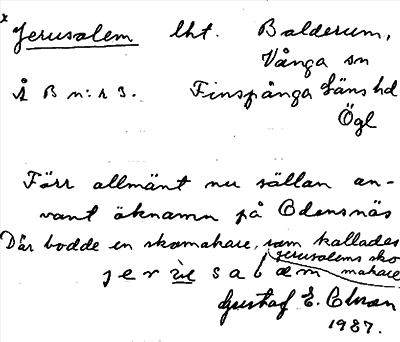 x Jerusalem lht. Balderum,
Vånga sn
Å B n:r 3. Finspånga Läns hd
Ögl
Förr allmänt nu sällan an-
vänt öknamn på Odensnäs
Där bodde en skomakare, som kallades
Jerusalems sko
makare
Gustaf E.
1927.